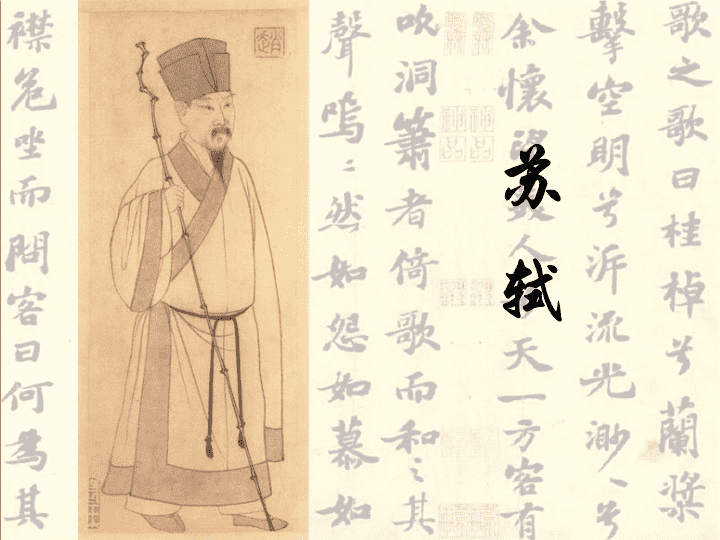 歌之歌曰桂棹兮蘭槳
擊空明兮泝流光渺〻兮
余懷望人天一方客有
苏轼
吹洞簫者倚歌而和之其
聲嗚〻然如怨如慕如
襟危坐而問客曰何為其